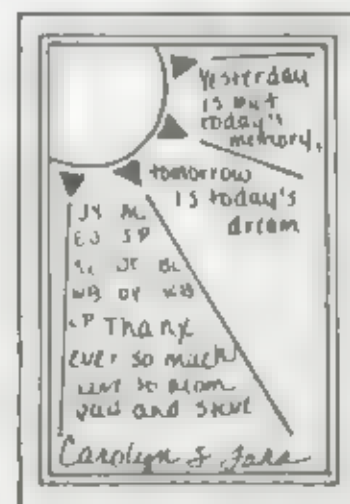 Yesterday
is but
today's
memory,
tomorrow
is today's
dream
JY
EJ SP
WB DY KB
Thanx
ever so much
love to mom
dad and Steve
Carolyn